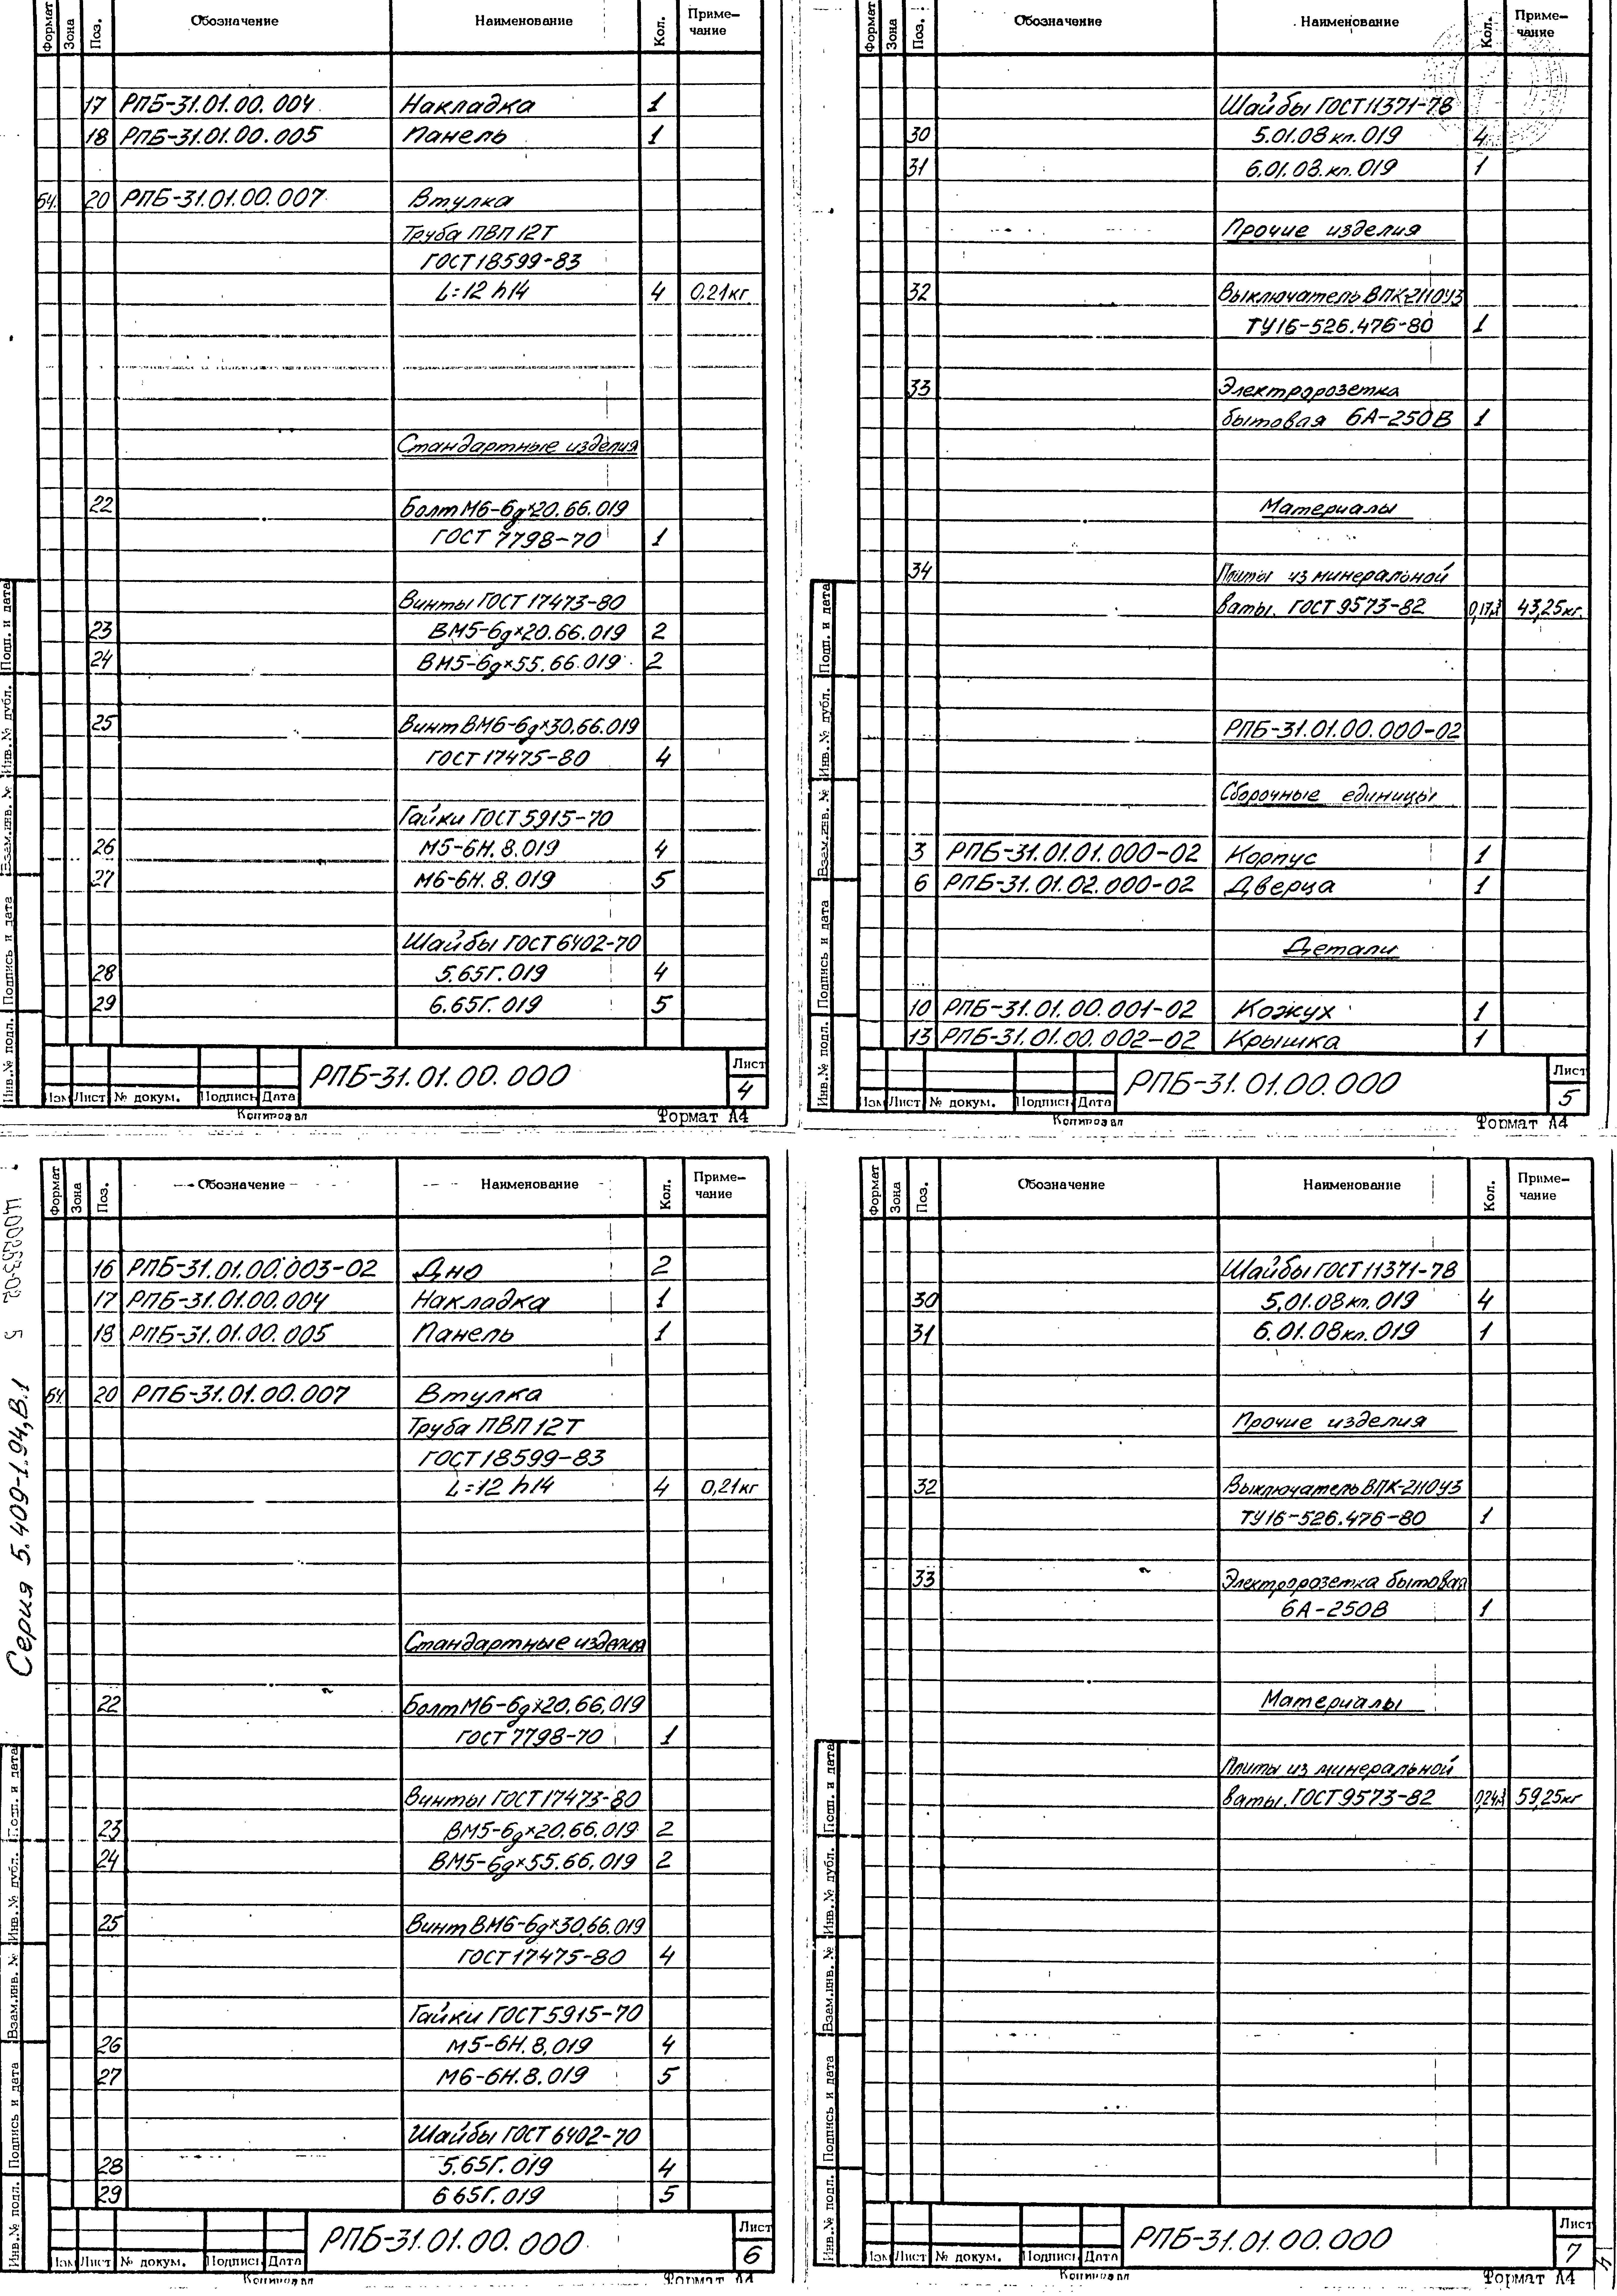 Формат Зона Поз. Обозначение Наименование Кол. Приме-
чание
17 РПБ-31.01.00.004 Накладка 1
18 РПБ-31.01.00.005 Панель 1
БЧ. 20 РПБ-31.01.00.007 Втулка
Труба ПВП 12Т
ГОСТ 18599-83
L=12 h14 4 0.21кг
Стандартные изделия
22 Болт М6-6g×20.66.019
ГОСТ 7798-70 1
Винты ГОСТ 17473-80
23 ВМ5-6g×20.66.019 2
24 ВМ5-6g×55.66.019 2
25 Винт ВМ6-6g×30.66.019
ГОСТ 17475-80 4
Гайки ГОСТ 5915-70
26 М5-6Н.8.019 4
27 М6-6Н.8.019 5
Шайбы ГОСТ 6402-70
28 5.65Г.019 4
29 6.65Г.019 5
Инв.№ подл. Подпись и дата Взам.инв. № Инв.№ дубл. Подп. и дата
Изм Лист № докум. Подпись Дата
РПБ-31.01.00.000
Лист
4
Копировал Формат А4
Формат Зона Поз. Обозначение Наименование Кол. Приме-
чание
Шайбы ГОСТ 11371-78
30 5.01.08кп.019 4
31 6.01.08.кп.019 1
Прочие изделия
32 Выключатель ВПК-2110У3
ТУ16-526.476-80 1
33 Электророзетка
бытовая 6А-250В 1
Материалы
34 Плиты из минеральной
ваты. ГОСТ 9573-82 0,17м³ 43,25кг.
РПБ-31.01.00.000-02
Сборочные единицы
3 РПБ-31.01.01.000-02 Корпус 1
6 РПБ-31.01.02.000-02 Дверца 1
Детали
10 РПБ-31.01.00.001-02 Кожух 1
13 РПБ-31.01.00.002-02 Крышка 1
Инв.№ подл. Подпись и дата Взам.инв. № Инв.№ дубл. Подп. и дата
Изм Лист № докум. Подпись Дата
РПБ-31.01.00.000
Лист
5
Копировал Формат А4
Серия 5.409-1.94, В.1
Формат Зона Поз. Обозначение Наименование Кол. Приме-
чание
16 РПБ-31.01.00.003-02 Дно 2
17 РПБ-31.01.00.004 Накладка 1
18 РПБ-31.01.00.005 Панель 1
БЧ 20 РПБ-31.01.00.007 Втулка
Труба ПВП 12Т
ГОСТ 18599-83
L=12 h14 4 0,21кг
Стандартные изделия
22 Болт М6-6g×20.66.019
ГОСТ 7798-70 1
Винты ГОСТ 17473-80
23 ВМ5-6g×20.66.019 2
24 ВМ5-6g×55.66.019 2
25 Винт ВМ6-6g×30.66.019
ГОСТ 17475-80 4
Гайки ГОСТ 5915-70
26 М5-6Н.8.019 4
27 М6-6Н.8.019 5
Шайбы ГОСТ 6402-70
28 5.65Г.019 4
29 6 65Г.019 5
Инв.№ подл. Подпись и дата Взам.инв. № Инв.№ дубл. Подп. и дата
Изм Лист № докум. Подпись Дата
РПБ-31.01.00.000
Лист
6
Копировал Формат А4
Формат Зона Поз. Обозначение Наименование Кол. Приме-
чание
Шайбы ГОСТ 11371-78
30 5.01.08кп.019 4
31 6.01.08кп.019 1
Прочие изделия
32 Выключатель ВПК-2110У3
ТУ16-526.476-80 1
33 Электророзетка бытовая
6А-250В 1
Материалы
Плиты из минеральной
ваты. ГОСТ 9573-82 0,24м³ 59,25кг
Инв.№ подл. Подпись и дата Взам.инв. № Инв.№ дубл. Подп. и дата
Изм Лист № докум. Подпись Дата
РПБ-31.01.00.000
Лист
7
Копировал Формат А4